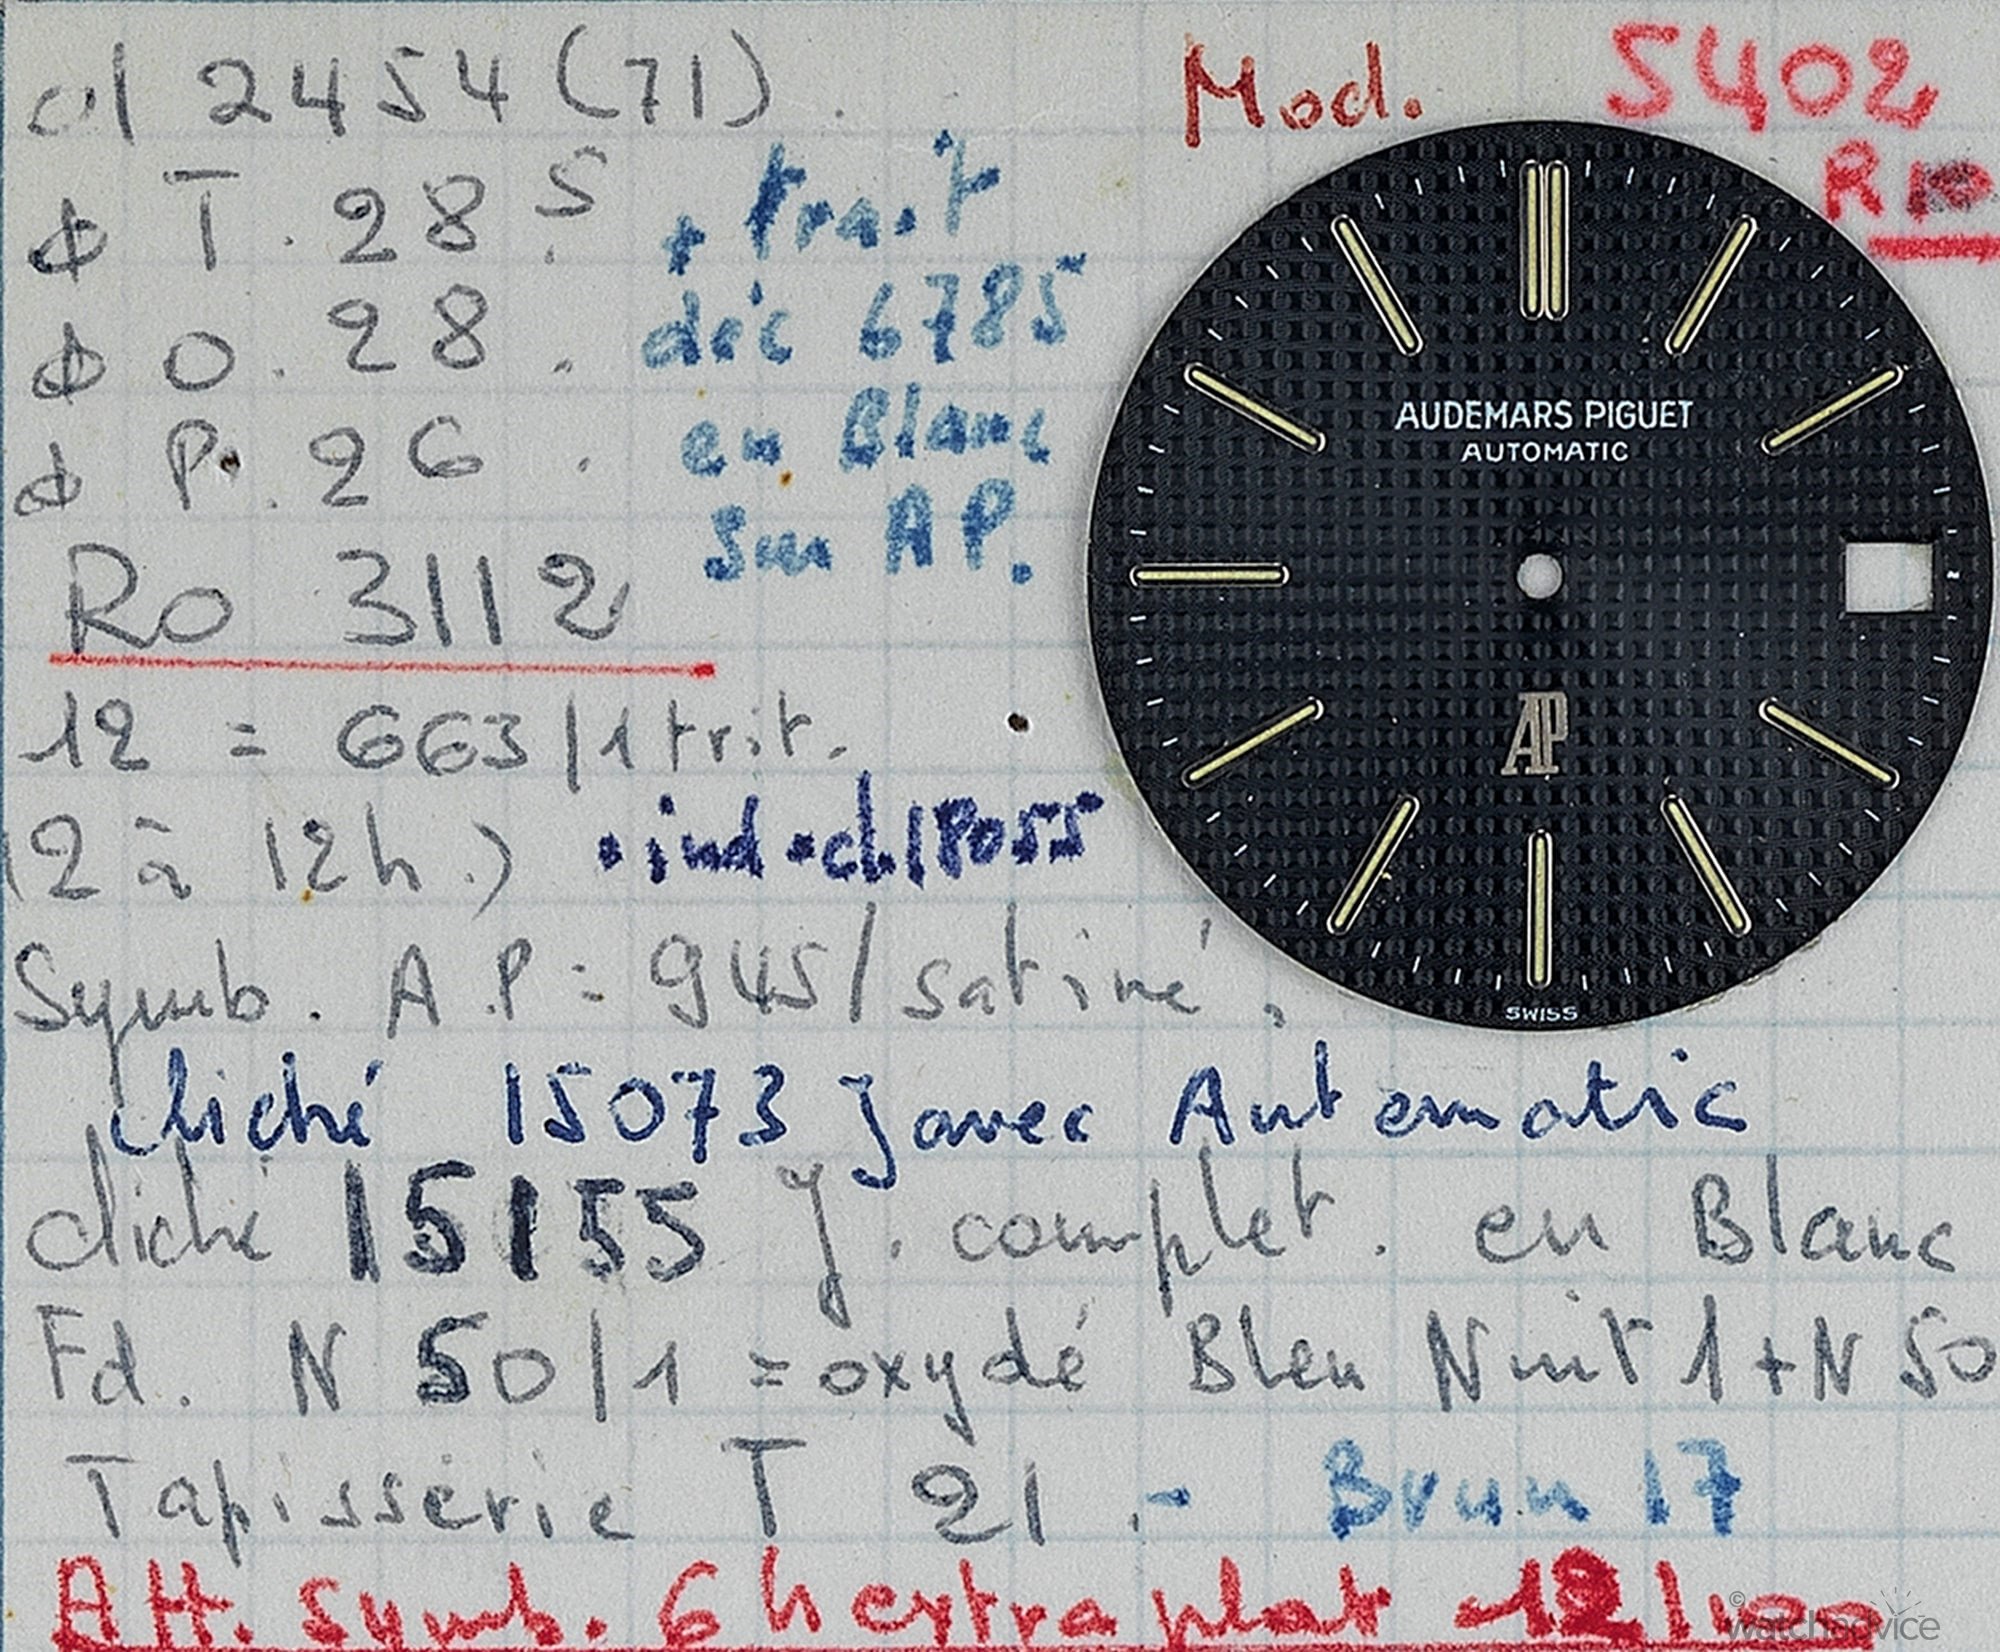 cl 2454 (71).
Mod. 5402
R
⌀ T. 28.5
+ trait
⌀ O. 28.
déc 6785
⌀ P. 26.
en Blanc
sur A P.
Ro 3112
12 = 663/1 trit.
(2 à 12h.)
ind. cl. 18055
Symb. A.P = 945/ satiné.
cliché 15073 J avec Automatic
cliché 15155 J. complet. en Blanc
Fd. N 50/1 = oxydé Bleu Nuit 1 + N 50
Tapisserie T 21.- Brun 17
Att. Symb. 6 h extra plat 12/100
AUDEMARS PIGUET
AUTOMATIC
AP
SWISS
© watchadvice